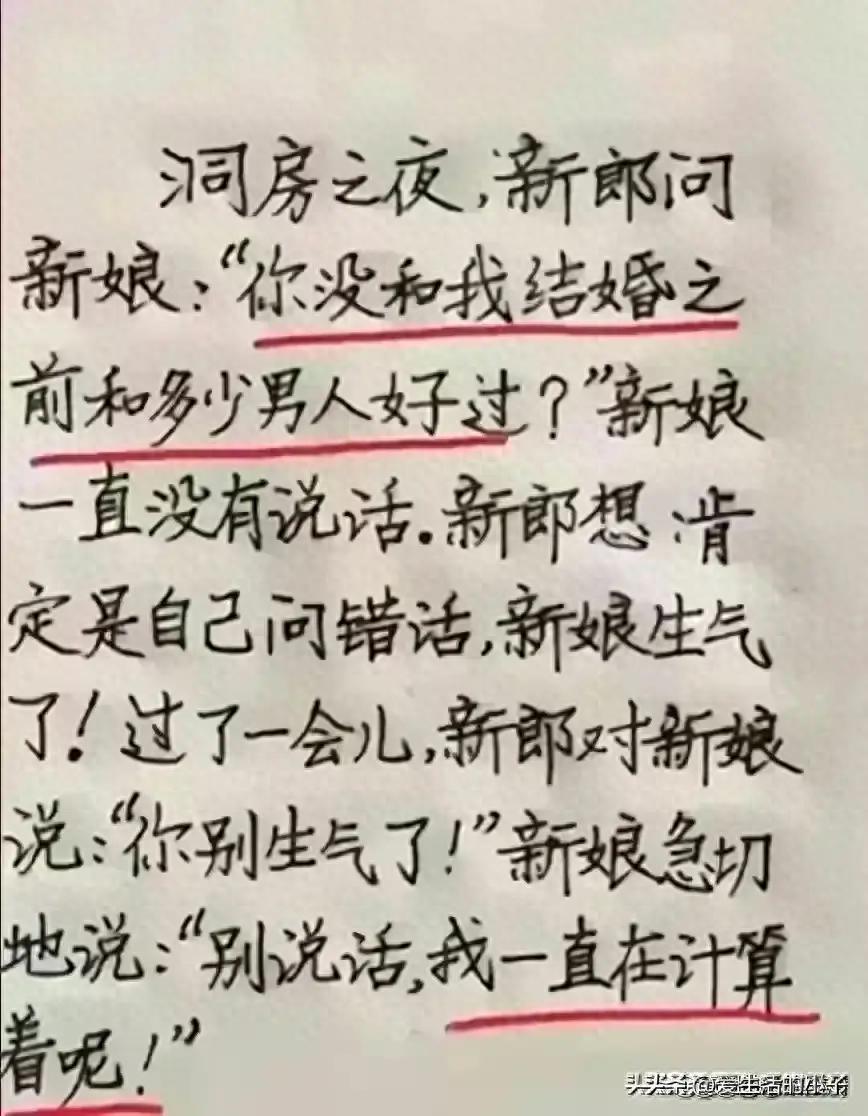 洞房之夜,新郎问
新娘:“你没和我结婚之
前和多少男人好过?”新娘
一直没有说话.新郎想:肯
定是自己问错话,新娘生气
了!过了一会儿,新郎对新娘
说:“你别生气了!”新娘急切
地说:“别说话,我一直在计算
着呢!”
头条@爱生活的小